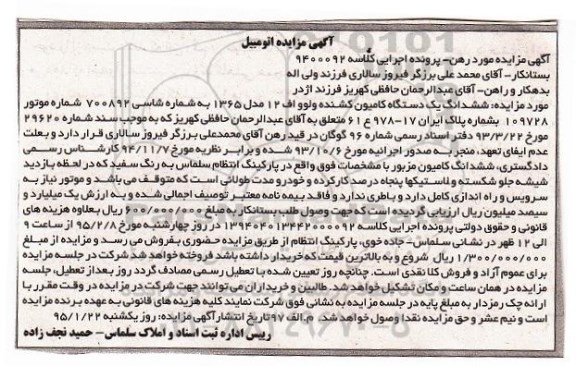 آگهی مزایده اتومبیل
آگهی مزایده مورد رهن- پرونده اجرایی کلاسه ۹۴۰۰۰۹۲
بستانکار- آقای محمد علی برزگر فیروز سالاری فرزند ولی اله
بدهکار و راهن- آقای عبدالرحمان حافظی کهریز فرزند اژدر
مورد مزایده: ششدانگ یک دستگاه کامیون کشنده ولوو اف ۱۲ مدل ۱۳۶۵ به شماره شاسی ۷۰۰۸۹۲ شماره موتور
۱۰۹۷۲۸ بشماره پلاک ایران ۱۷-۹۷۸ ع ۶۱ متعلق به آقای عبدالرحمان حافظی کهریز که به موجب سند شماره ۲۹۶۲۰
مورخ ۹۳/۳/۲۲ دفتر اسناد رسمی شماره ۹۶ گوگان در قید رهن آقای محمدعلی برزگر فیروز سالاری قرار دارد و بعلت
عدم ایفای تعهد، منجر به صدور اجرائیه مورخ ۹۳/۱۰/۶ شده و برابر نظریه مورخ ۹۴/۱۱/۷ کارشناس رسمی
دادگستری، ششدانگ کامیون مزبور با مشخصات فوق واقع در پارکینگ انتظام سلماس به رنگ سفید که در لحظه بازدید
شیشه جلو شکسته و لاستیکها پنجاه درصد کارکرده و خودرو مدت طولانی است که متوقف می باشد و موتور نیاز به
سرویس و راه اندازی کامل دارد و باطری ندارد و فاقد بیمه نامه معتبر توصیف اجمالی شده و به ارزش یک میلیارد و
سیصد میلیون ریال ارزیابی گردیده است که جهت وصول طلب بستانکار به مبلغ ۶۰۰/۰۰۰/۰۰۰ ریال بعلاوه هزینه های
قانونی و حقوق دولتی پرونده اجرایی کلاسه ۱۳۹۴۰۴۰۱۳۴۴۲۰۰۰۰۹۲ در روز چهارشنبه مورخ ۹۵/۲/۸ از ساعت ۹
الی ۱۲ ظهر در نشانی سلماس- جاده خوی، پارکینگ انتظام از طریق مزایده حضوری بفروش می رسد و مزایده از مبلغ
۱/۳۰۰/۰۰۰/۰۰۰ ریال شروع و به بالاترین قیمت که خریدار داشته باشد فروخته خواهد شد شرکت در جلسه مزایده
برای عموم آزاد و فروش کلا نقدی است. چنانچه روز تعیین شده با تعطیل رسمی مصادف گردد روز بعد از تعطیل، جلسه
مزایده در همان ساعت و مکان تشکیل خواهد شد. طالبین و خریداران می توانند جهت شرکت در مزایده در وقت مقرر با
ارائه چک رمزدار به مبلغ پایه در جلسه مزایده به نشانی فوق شرکت نمایند کلیه هزینه های قانونی به عهده برنده مزایده
است و نیم عشر و حق مزایده نقدا وصول خواهد شد. م.الف ۹۷ تاریخ انتشار آگهی مزایده: روز یکشنبه ۹۵/۱/۲۲
رییس اداره ثبت اسناد و املاک سلماس- حمید نجف زاده